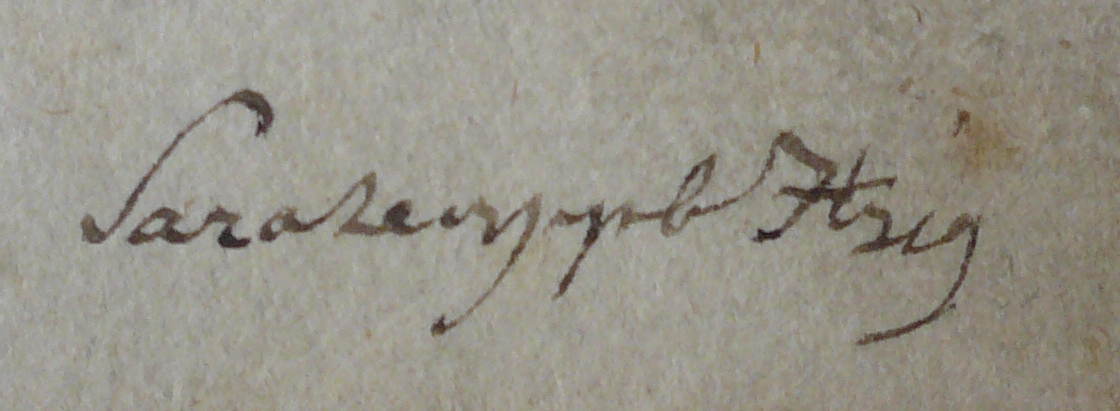 Sara Levy geb Itzig